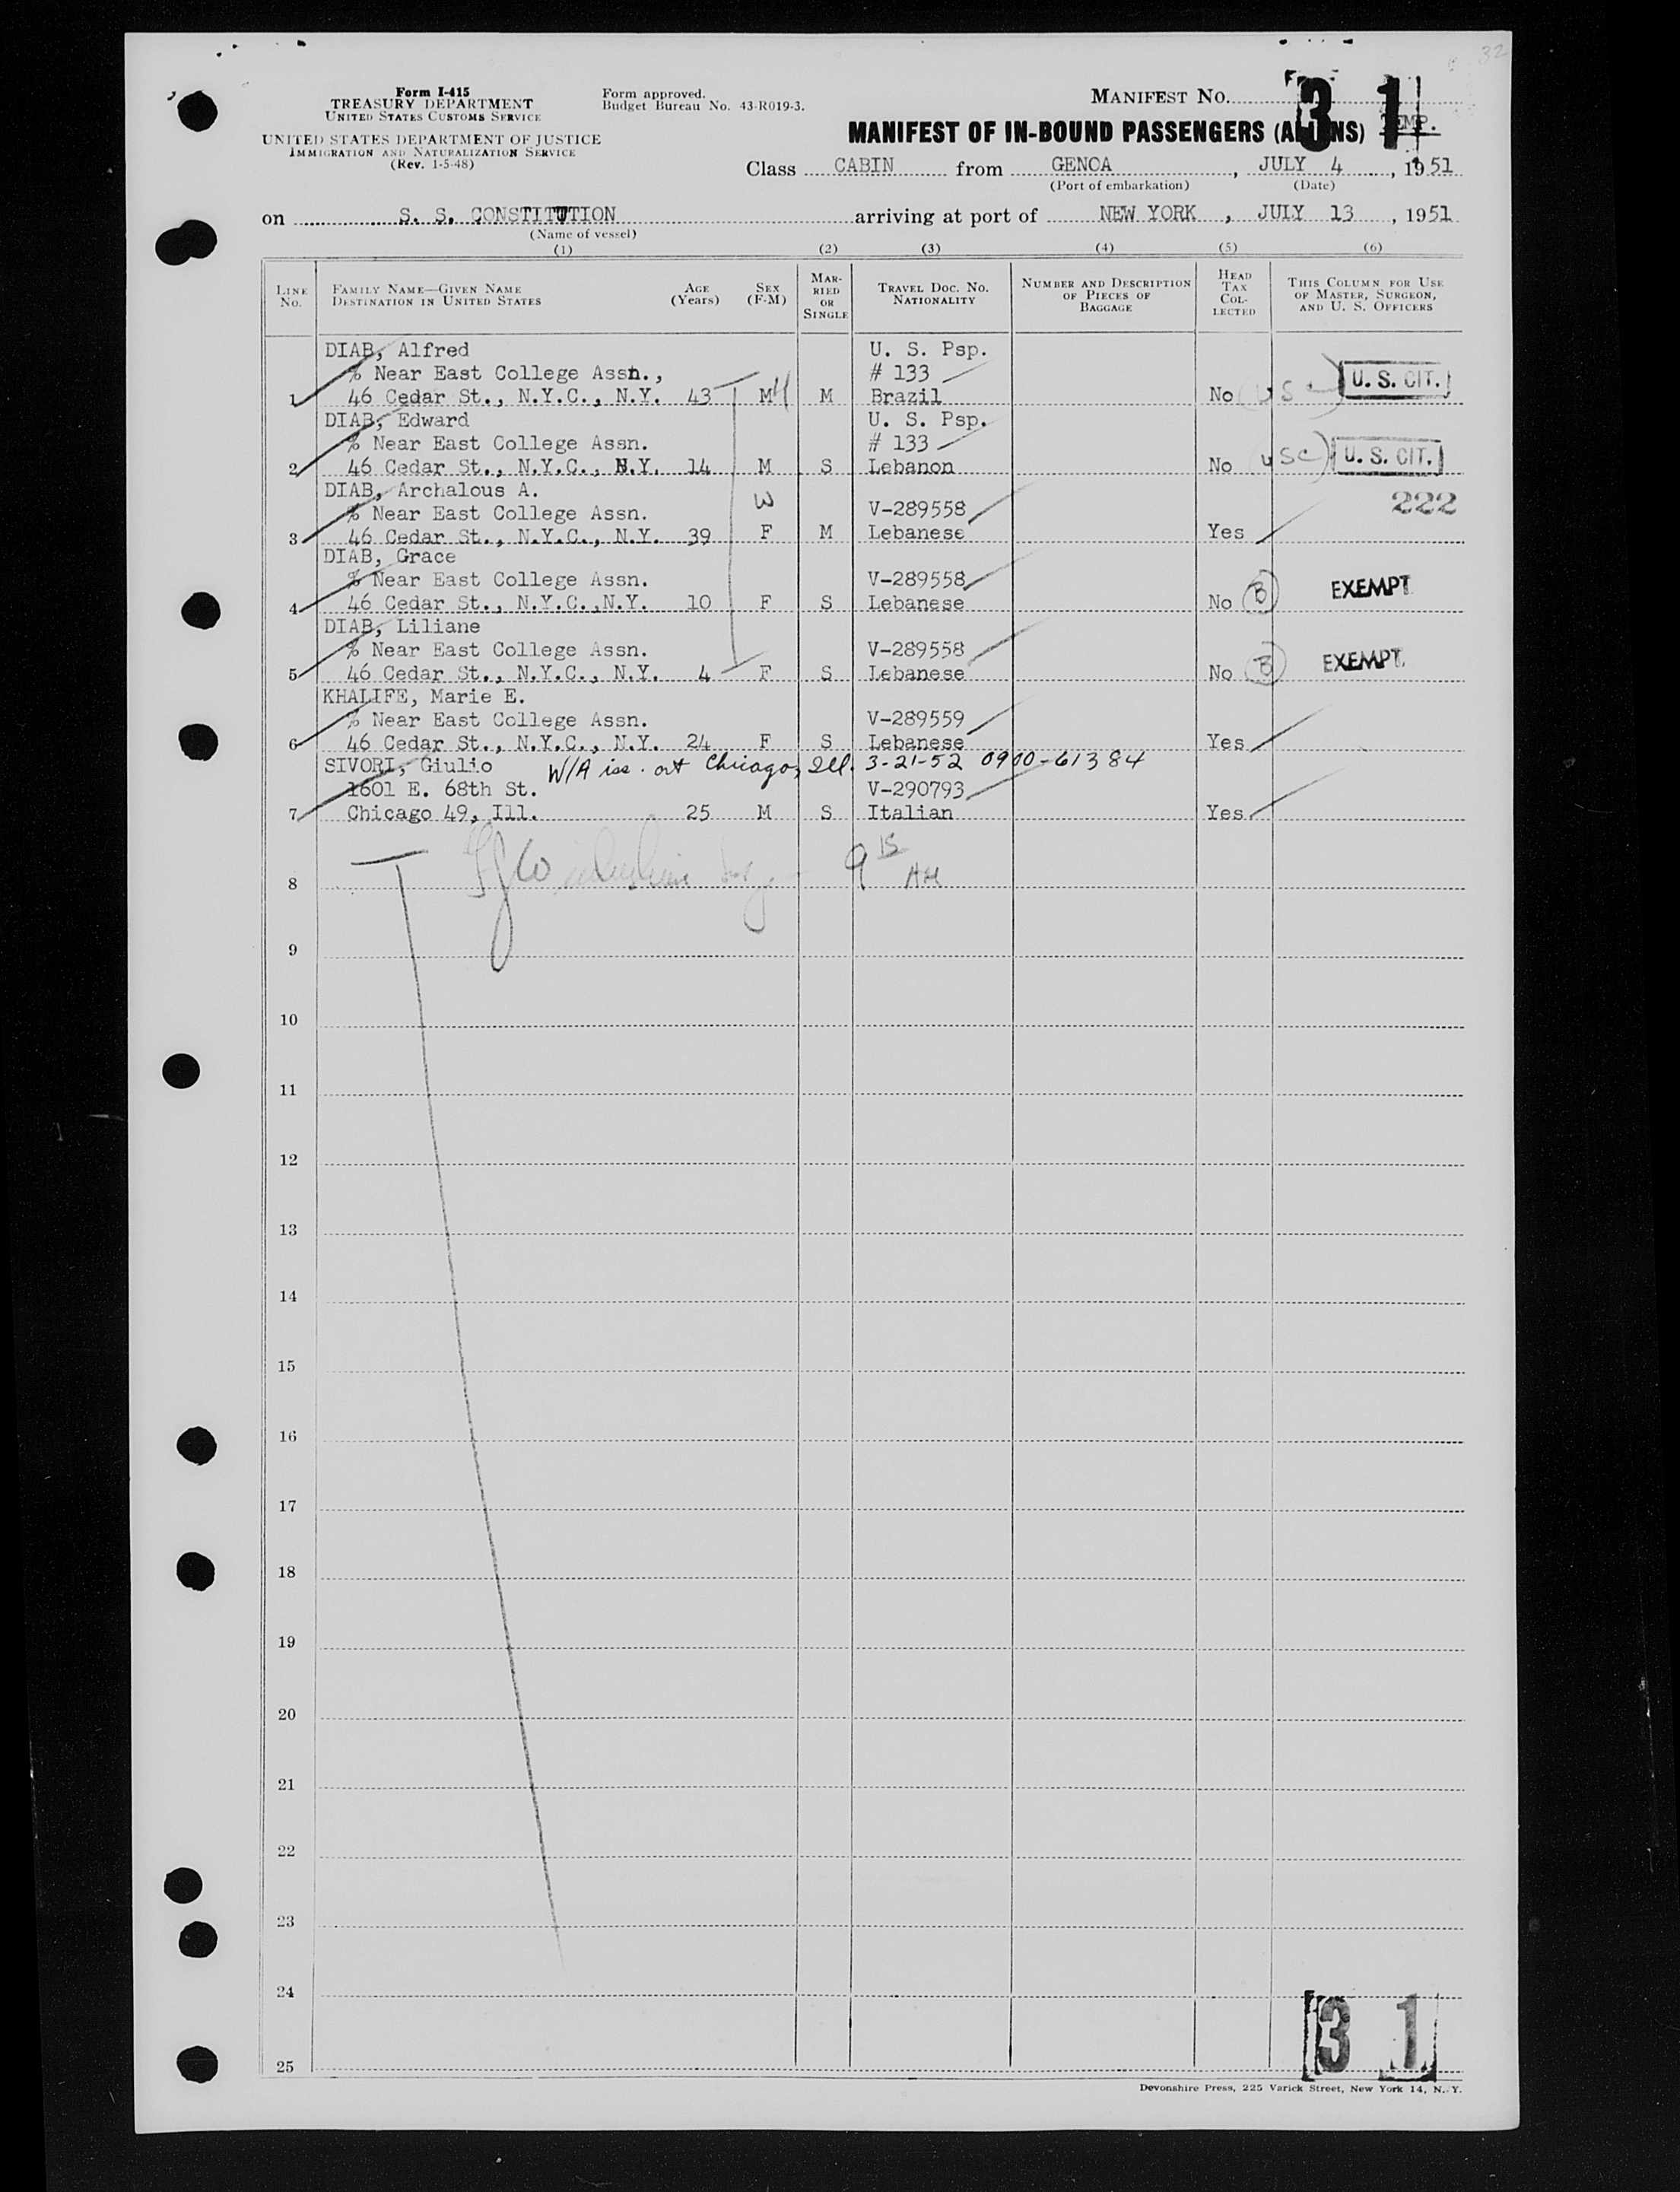 32
Form I-415
TREASURY DEPARTMENT
UNITED STATES CUSTOMS SERVICE
UNITED STATES DEPARTMENT OF JUSTICE
IMMIGRATION AND NATURALIZATION SERVICE
(Rev. 1-5-48)
Form approved.
Budget Bureau No. 43-R019-3.
MANIFEST NO. 31
MANIFEST OF IN-BOUND PASSENGERS (ALIENS)
Class CABIN from GENOA, JULY 4, 1951
(Port of embarkation) (Date)
on S. S. CONSTITUTION arriving at port of NEW YORK, JULY 13, 1951
(Name of vessel)
(1) (2) (3) (4) (5) (6)
LINE NO.
FAMILY NAME—GIVEN NAME
DESTINATION IN UNITED STATES
AGE (Years)
SEX (F-M)
MARRIED OR SINGLE
TRAVEL DOC. NO.
NATIONALITY
NUMBER AND DESCRIPTION OF PIECES OF BAGGAGE
HEAD TAX COLLECTED
THIS COLUMN FOR USE OF MASTER, SURGEON, AND U. S. OFFICERS
DIAB, Alfred U. S. Psp.
% Near East College Assn., # 133
1 46 Cedar St., N.Y.C., N.Y. 43 M M Brazil No (USC) U. S. CIT.
DIAB, Edward U. S. Psp.
% Near East College Assn. # 133
2 46 Cedar St., N.Y.C., N.Y. 14 M S Lebanon No USC) U. S. CIT.
DIAB, Archalous A. W 222
% Near East College Assn. V-289558
3 46 Cedar St., N.Y.C., N.Y. 39 F M Lebanese Yes
DIAB, Grace
% Near East College Assn. V-289558
4 46 Cedar St., N.Y.C.,N.Y. 10 F S Lebanese No B EXEMPT
DIAB, Liliane
% Near East College Assn. V-289558
5 46 Cedar St., N.Y.C., N.Y. 4 F S Lebanese No B EXEMPT
KHALIFE, Marie E.
% Near East College Assn. V-289559
6 46 Cedar St., N.Y.C., N.Y. 24 F S Lebanese Yes
SIVORI, Giulio W/A iss. at Chicago, Ill. 3-21-52 0900-61384
1601 E. 68th St. V-290793
7 Chicago 49, Ill. 25 M S Italian Yes
9 15 AM
8
9
10
11
12
13
14
15
16
17
18
19
20
21
22
23
24
25
31
Devonshire Press, 225 Varick Street, New York 14, N. Y.